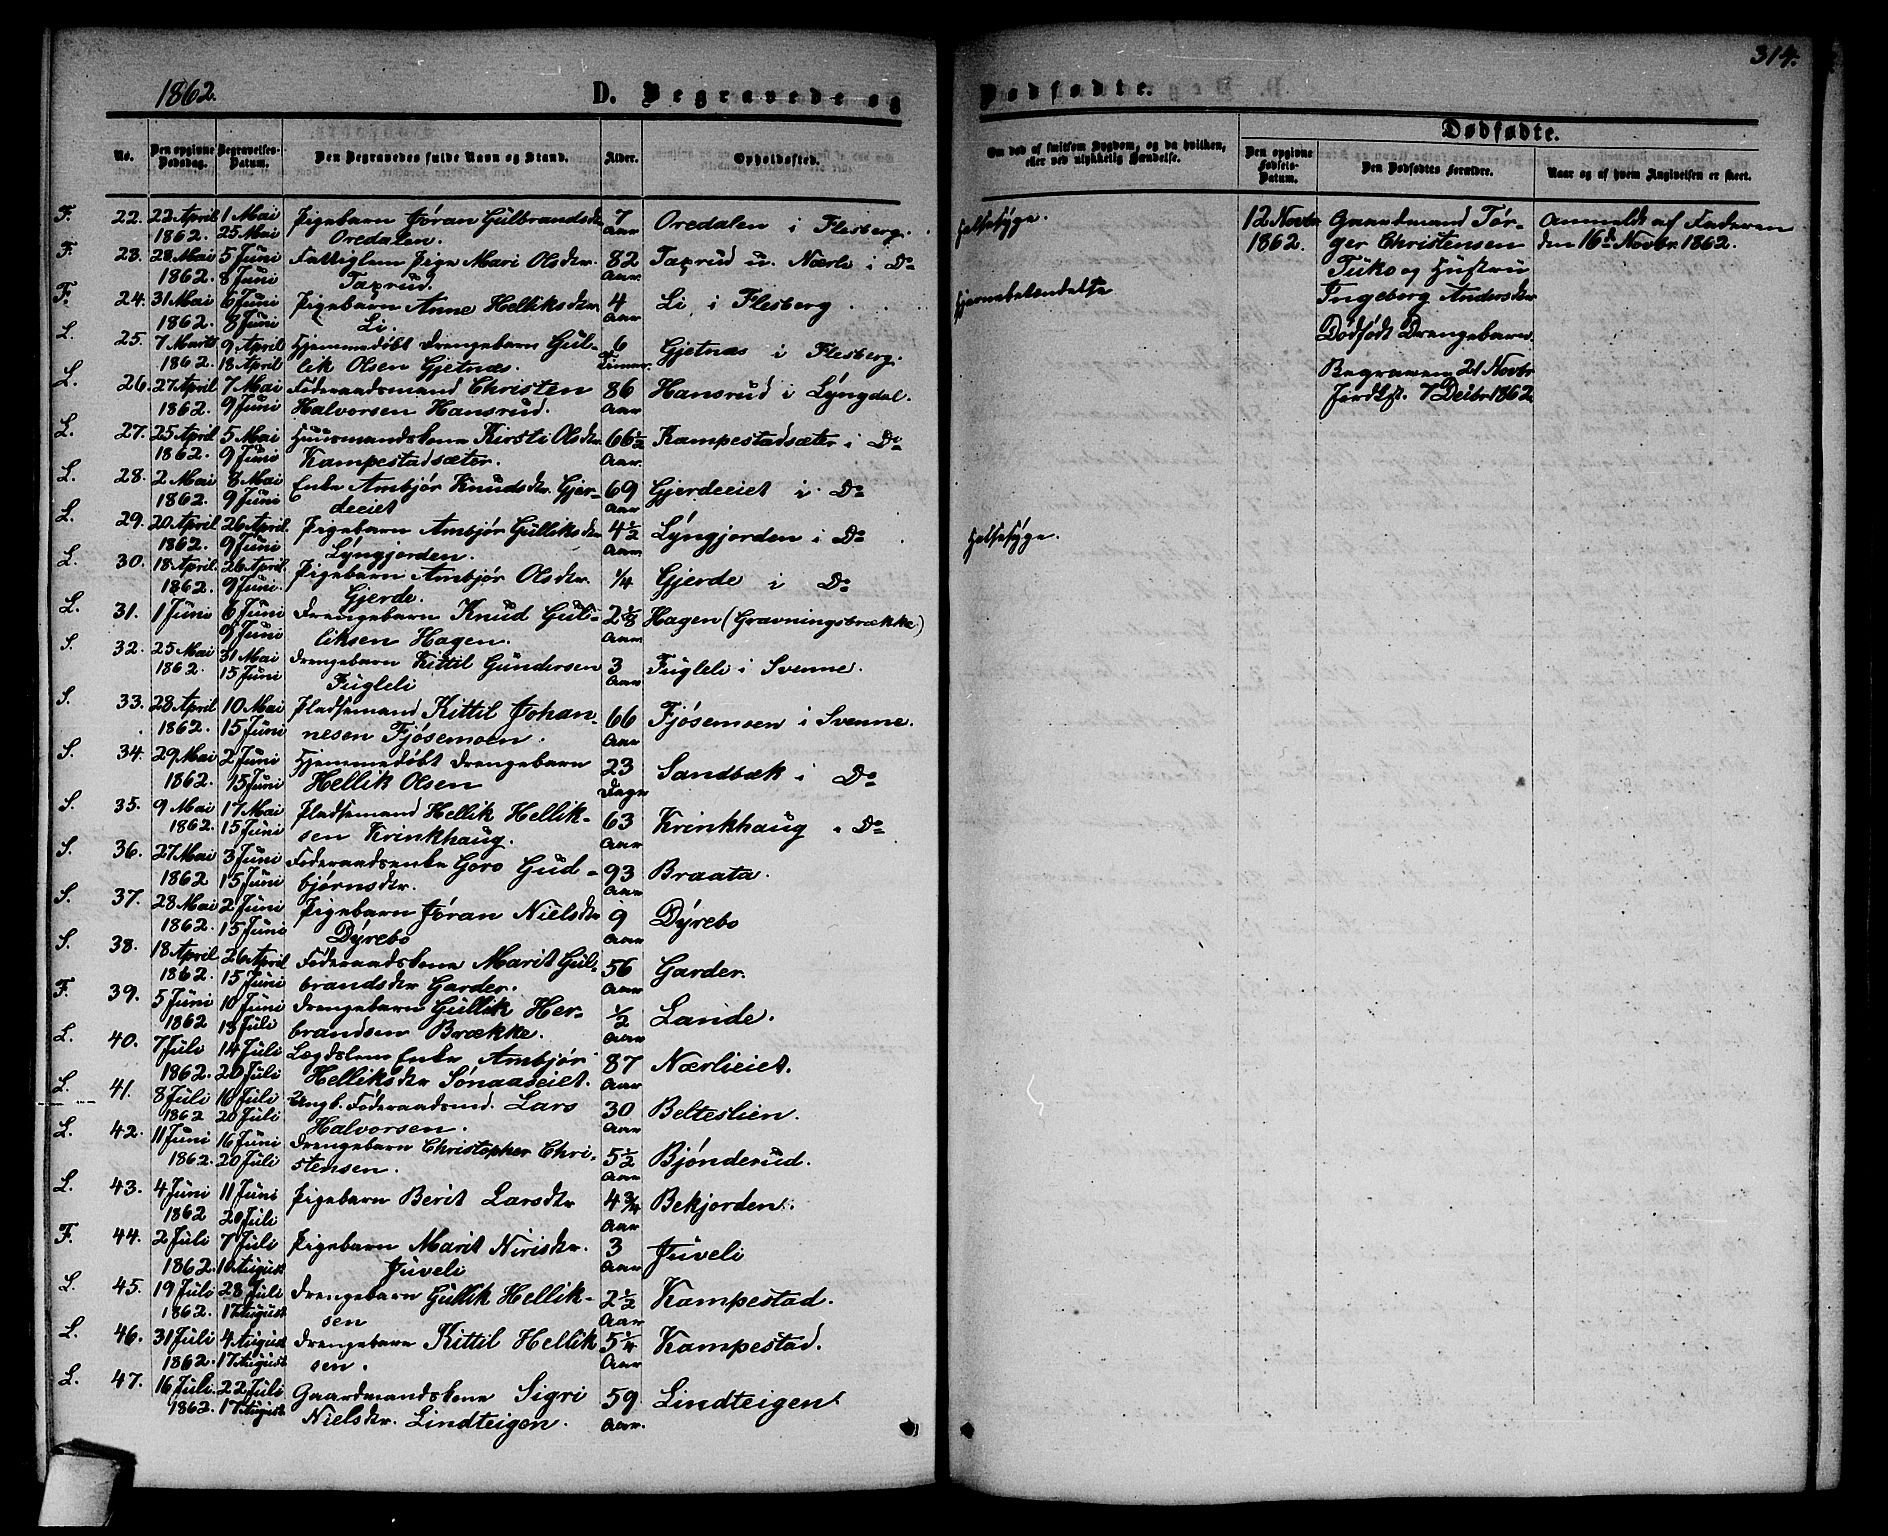 314.
1862. D. Begravede og Dødfødte.
No. Den opgivne Dødsdag. Begravelses-Datum. Den Begravedes fulde Navn og Stand. Alder. Opholdssted.
Om død af smitsom Sygdom, og da hvilken, eller ved ulykkelig Hændelse.
Dødfødte.
Den opgivne Fødsels-Datum. Den Dødfødtes Forældre. Naar og af hvem Angivelsen er skeet.
F. 22. 22 April 1 Mai Pigebarn Jøran Gulbrandsdtr 7 Oredalen i Flesberg.
1862. 25 Mai Oredalen. Aar
F. 23. 28 Mai 5 Juni Fattiglem Pige Mari Olsdtr. 82 Taxrud u. Nærli i Do
1862. 8 Juni Taxrud. Aar.
F. 24. 31 Mai 6 Juni Pigebarn Anne Helliksdtr. 4 Li i Flesberg.
1862. 8 Juni Li. Aar
L. 25. 7 Marts 9 April Hjemmedøbt Drengebarn Gul- 6 Gjetnæs i Flesberg.
1862. 18 April lik Olsen Gjetnæs. Timer.
L. 26. 27 April 7 Mai Føderaadsmand Christen 86 Hansrud i Lyngdal.
1862. 9 Juni Halvorsen Hansrud. Aar
L. 27. 25 April 5 Mai Huusmandskone Kirsti Olsdtr. 66½ Kampestadsæter i Do
1862. 9 Juni Kampestadsæter. Aar.
L. 28. 2 Mai 8 Mai Enke Ambjør Knudsdtr. Gjer- 69 Gjerdeeiet i Do
1862. 9 Juni deeiet Aar
L. 29. 20 April 26 April Pigebarn Ambjør Gulliksdtr 4½ Lyngjorden i Do
1862. 9 Juni Lyngjorden. Aar.
L. 30. 18 April. 26 April. Pigebarn Ambjør Olsdtr. ¼ Gjerde i Do
1862. 9 Juni Gjerde.
L. 31. 1 Juni 6 Juni Drengebarn Knud Gul- 2⅛ Hagen (Gravningsbrække)
9 Juni liksen Hagen. Aar.
S. 32. 25 Mai 31 Mai Drengebarn Kittil Gundersen 3 Fugleli i Svenne.
1862. 15 Juni Fugleli Aar
S. 33. 23 April 10 Mai Pladsemand Kittil Johan- 66 Fjøsemoen i Svenne.
1862. 15 Juni nesen Fjøsemoen. Aar
S. 34. 29 Mai 2 Juni Hjemmedøbt Drengebarn 23 Sandbæk i Do
1862. 15 Juni Hellik Olsen Dage
S. 35. 9 Mai 17 Mai Pladsemand Hellik Hellik- 63 Krinkhaug i Do
1862. 15 Juni sen Krinkhaug. Aar
S. 36. 27 Mai 3 Juni Føderaadsenke Goro Gud- 93 Braata.
1862 15 Juni bjørnsdtr. Aar
S. 37. 28 Mai 2 Juni Pigebarn Jøran Nielsdtr 9 Dyrebo
1862. 15 Juni Dyrebo Aar
S. 38. 18 April 26 April Føderaadskone Marit Gul- 56 Garder.
1862. 15 Juni brandsdtr Garder. Aar
F. 39. 5 Juni 10 Juni Drengebarn Gullik Her- ½ Lande.
1862 13 Juli brandsen Brække. Aar
L. 40. 7 Juli 14 Juli Lægdslem Enke Ambjør 87 Nærlieiet.
1862. 20 Juli Helliksdtr Sønaaseiet. Aar
L. 41. 8 Juli 16 Juli Ungk. Føderaadsmd. Lars 30 Belteslien.
1862 20 Juli Halvorsen. Aar
L. 42. 11 Juni 16 Juni Drengebarn Christopher Chri- 5½ Bjønderud.
1862. 20 Juli stensen. Aar
L. 43. 4 Juni 11 Juni Pigebarn Berit Larsdtr 4¾ Bekjorden.
1862 20 Juli Aar
F. 44. 2 Juli 7 Juli Pigebarn Marit Nirisdtr. 3 Juveli
1862. 10 August Juveli Aar
L. 45. 19 Juli 28 Juli Drengebarn Gullik Hellik- 2½ Kampestad.
1862. 17 August sen Aar
L. 46. 31 Juli 4 August Drengebarn Kittil Hellik 5¼ Kampestad.
1862. 17 August sen. Aar
L. 47. 16 Juli. 22 Juli Gaardmandskone Sigri 59 Lindteigen
1862. 17 August Nielsdtr. Lindteigen. Aar.
Halsesyge.
Hjernebetændelse
Halsesyge.
12 Novbr Gaardmand Tor- Anmeldt af Faderen
1862. ger Christensen den 16de Novbr. 1862.
Tuko og Hustru
Ingeborg Andersdtr
Dødfødt Drengebarn.
Begraven 21 Novbr
Jordkst. 7 Decbr 1862